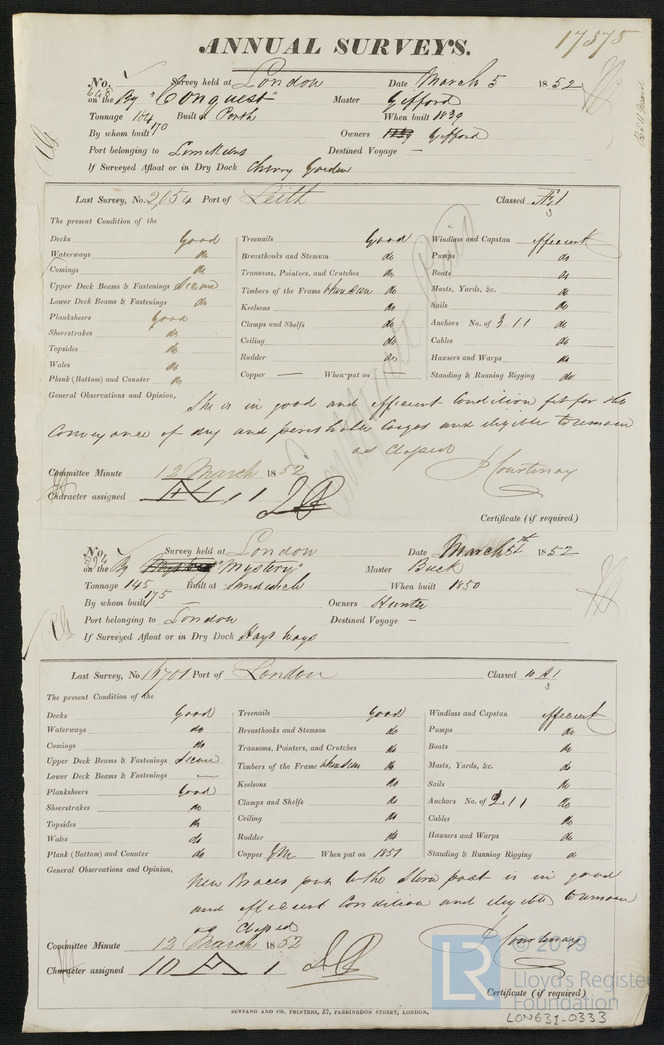 17375
ANNUAL SURVEYS.
No. 648 Survey held at London Date March 5 1852
on the By "Conquest" Master Gifford
Tonnage 184 Built at Perth When built 1839
170
By whom built Owners Gifford
Port belonging to Destined Voyage —
If Surveyed Afloat or in Dry Dock Cherry Garden
Last Survey, No. 2,054 Port of Leith Classed Æ 1
3
The present Condition of the
Decks Good Treenails Good Windlass and Capstan efficient
Waterways do Breasthooks and Stemson do Pumps do
Comings do Transoms, Pointers, and Crutches do Boats do
Upper Deck Beams & Fastenings Secure Timbers of the Frame when seen do Masts, Yards, &c. do
Lower Deck Beams & Fastenings do Keelsons do Sails do
Planksheers Good Clamps and Shelfs do Anchors No. of 3 1 1 do
Sheerstrakes do Ceiling do Cables do
Topsides do Rudder do Hawsers and Warps do
Wales do Copper — When put on — Standing & Running Rigging do
Plank (Bottom) and Counter do
General Observations and Opinion, She is in good and efficient Condition fit for the
Conveyance of dry and perishable cargos and eligible to remain
as Classed J Courtenay
Committee Minute 12 March 1852
Character assigned Æ 1 1
Certificate (if required)
No. Survey held at London Date March 5th 1852
on the By "Mystery" Master Buck
Tonnage 145 Built at Sandwich When built 1850
175
By whom built — Owners Hunter
Port belonging to London Destined Voyage —
If Surveyed Afloat or in Dry Dock Hays ways
Last Survey, No. 16701 Port of London Classed 10 A 1
3
The present Condition of the
Decks Good Treenails Good Windlass and Capstan efficient
Waterways do Breasthooks and Stemson do Pumps do
Comings do Transoms, Pointers, and Crutches do Boats do
Upper Deck Beams & Fastenings Secure Timbers of the Frame when seen do Masts, Yards, &c. do
Lower Deck Beams & Fastenings — Keelsons do Sails do
Planksheers Good Clamps and Shelfs do Anchors No. of 2 1 1 do
Sheerstrakes do Ceiling do Cables do
Topsides do Rudder do Hawsers and Warps do
Wales do Copper YM When put on 1851 Standing & Running Rigging do
Plank (Bottom) and Counter do
General Observations and Opinion, New Braces put to the Stern post is in good
and efficient Condition and eligible to remain
as Classed J Courtenay
Committee Minute 12 March 1852
Character assigned 10 A 1
Certificate (if required)
SEYFANG AND CO. PRINTERS, 57, FARRINGDON STREET, LONDON.
LR © 2019
Lloyd's Register
Foundation
LON631-0333